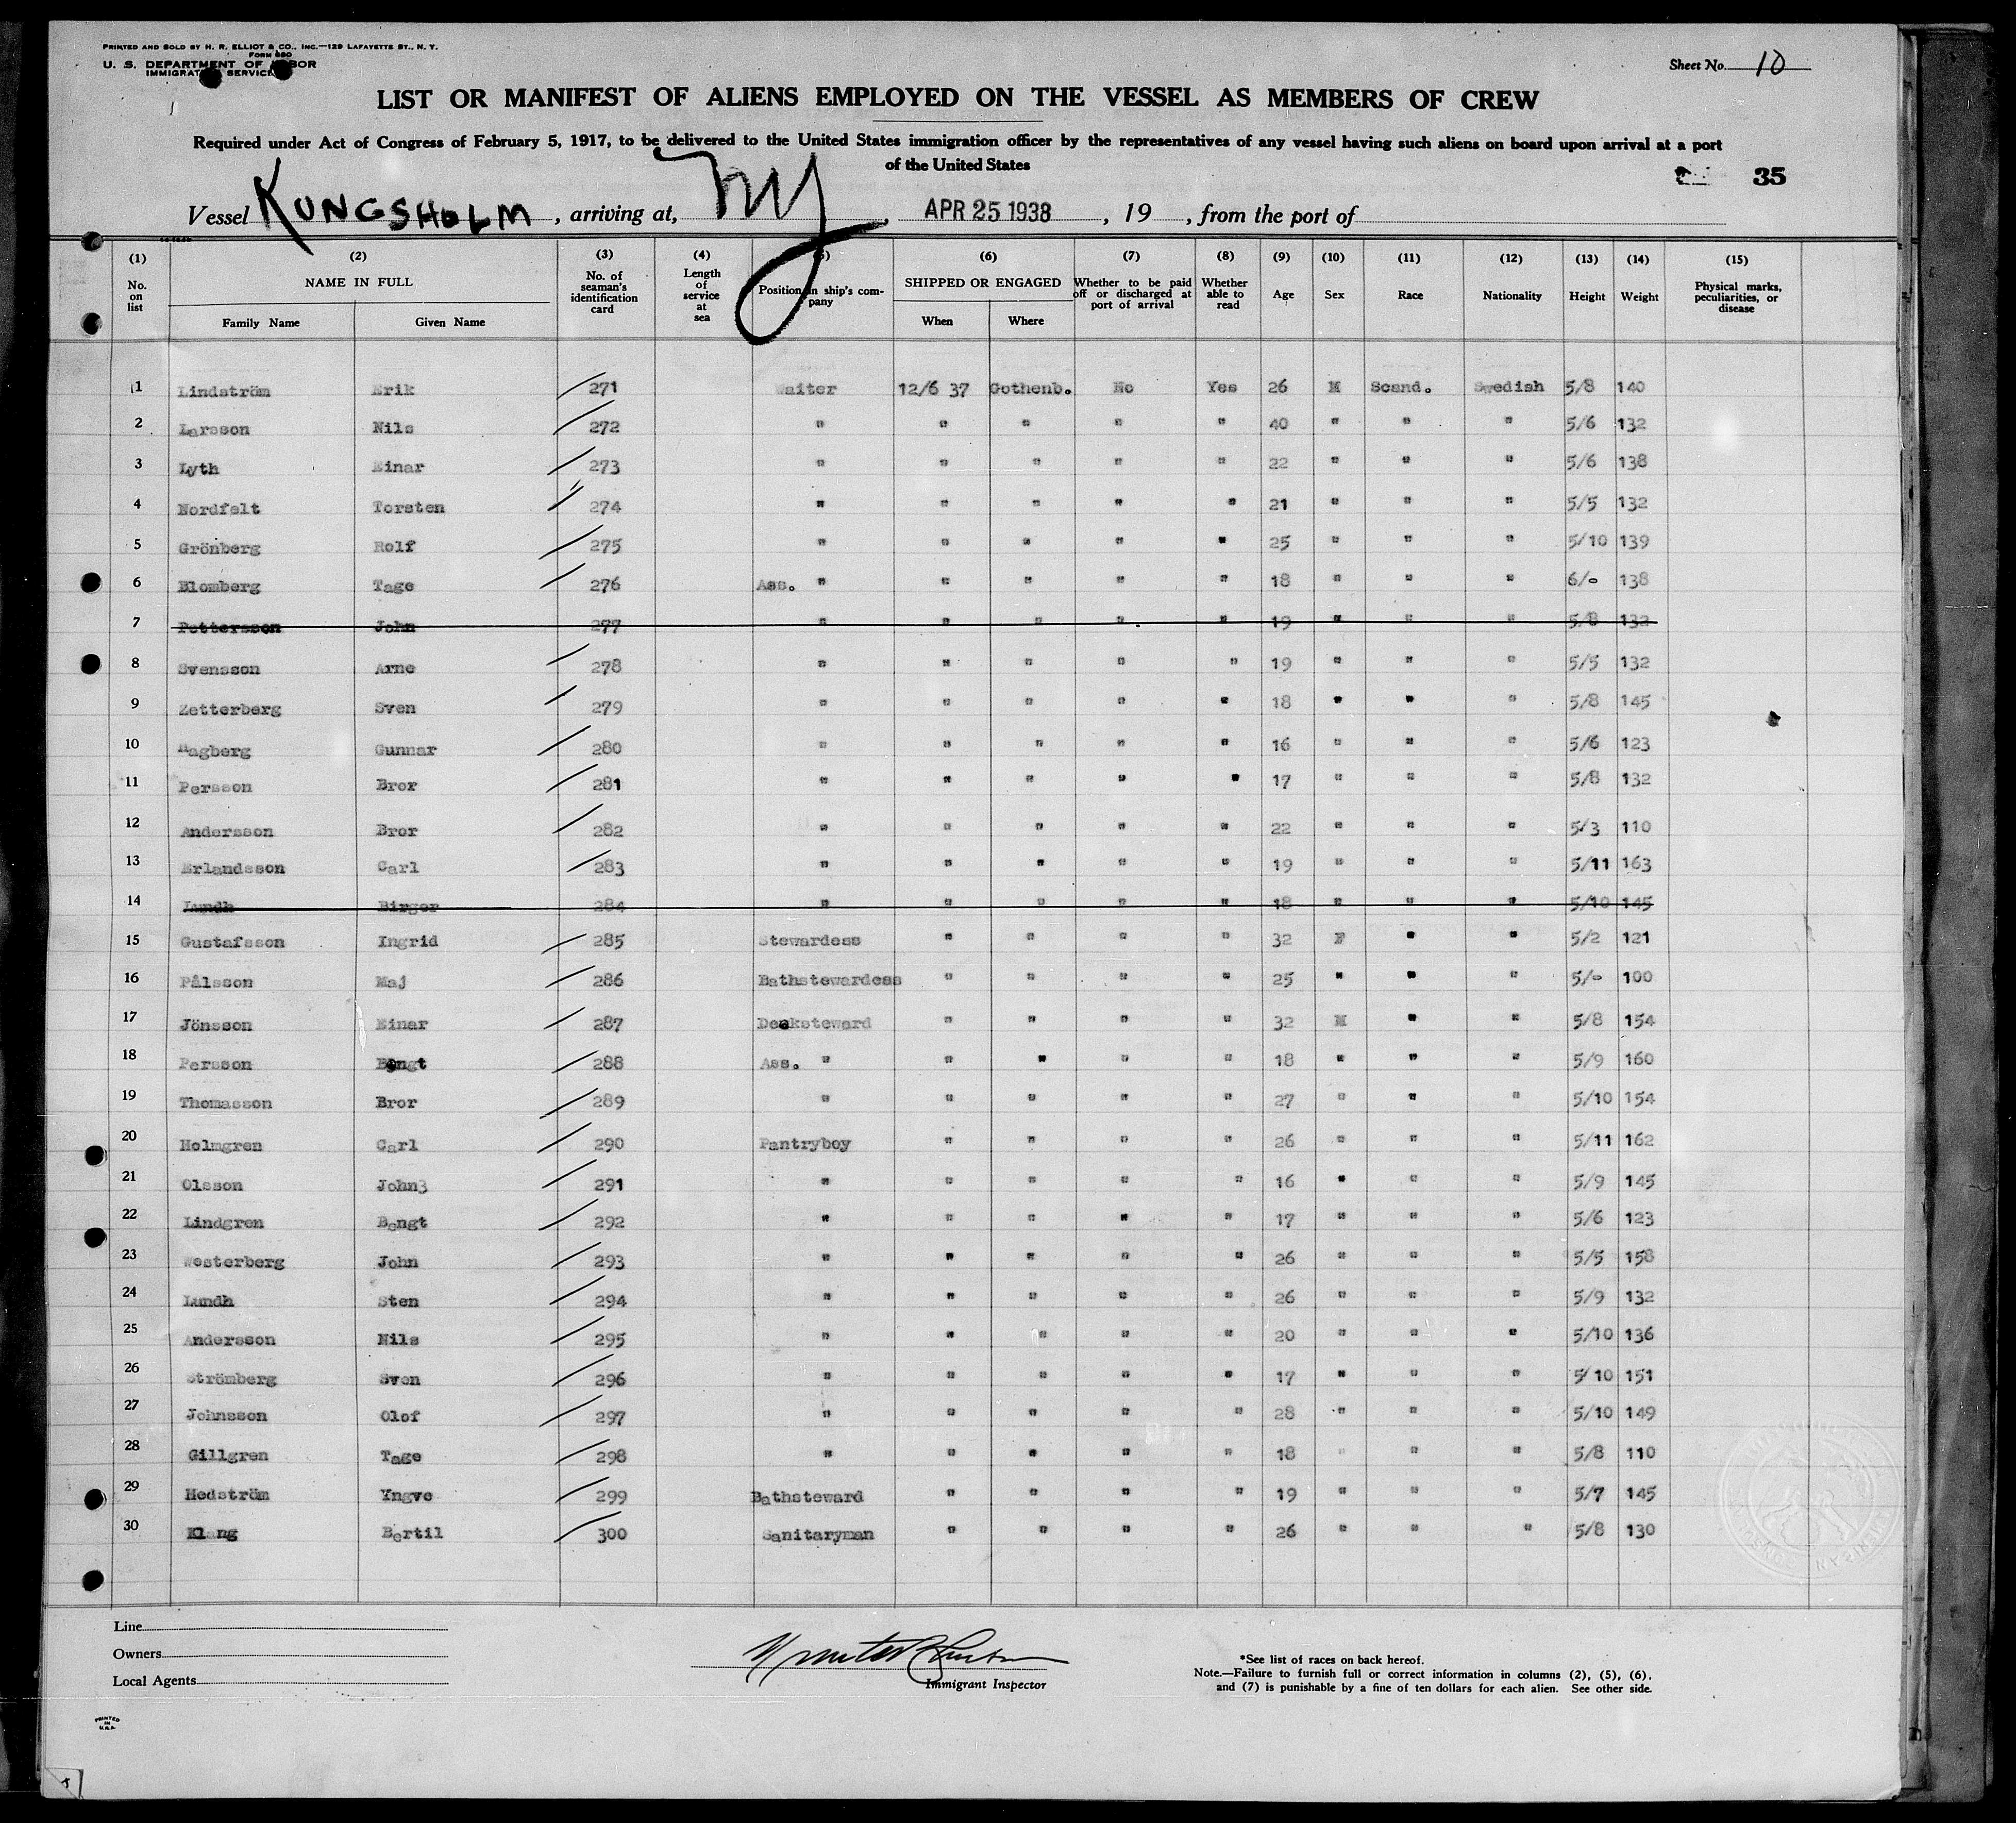 PRINTED AND SOLD BY H. R. ELLIOT & CO., INC.—129 LAFAYETTE ST., N. Y.
FORM 680
U. S. DEPARTMENT OF LABOR
IMMIGRATION SERVICE
Sheet No. 10
LIST OR MANIFEST OF ALIENS EMPLOYED ON THE VESSEL AS MEMBERS OF CREW
Required under Act of Congress of February 5, 1917, to be delivered to the United States immigration officer by the representatives of any vessel having such aliens on board upon arrival at a port
of the United States
35
Vessel KUNGSHOLM, arriving at, NY, APR 25 1938, 19 , from the port of
(1) (2) (3) (4) (5) (6) (7) (8) (9) (10) (11) (12) (13) (14) (15)
No. on list NAME IN FULL Family Name Given Name No. of seaman's identification card Length of service at sea Position in ship's company SHIPPED OR ENGAGED When Where Whether to be paid off or discharged at port of arrival Whether able to read Age Sex Race Nationality Height Weight Physical marks, peculiarities, or disease
1 Lindström Erik 271 Waiter 12/6 37 Gothenb. No Yes 26 M Scand. Swedish 5/8 140
2 Larsson Nils 272 " " " " " 40 " " " 5/6 132
3 Lyth Einar 273 " " " " " 22 " " " 5/6 138
4 Nordfelt Torsten 274 " " " " " 21 " " " 5/5 132
5 Grönberg Rolf 275 " " " " " 25 " " " 5/10 139
6 Blomberg Tage 276 Ass. " " " " " 18 " " " 6/- 138
7 Pettersson John 277 " " " " " 19 " " " 5/8 132
8 Svensson Arne 278 " " " " " 19 " " " 5/5 132
9 Zetterberg Sven 279 " " " " " 18 " " " 5/8 145
10 Hagberg Gunnar 280 " " " " " 16 " " " 5/6 123
11 Persson Bror 281 " " " " " 17 " " " 5/8 132
12 Andersson Bror 282 " " " " " 22 " " " 5/3 110
13 Erlandsson Carl 283 " " " " " 19 " " " 5/11 163
14 Lundh Birger 284 " " " " " 18 " " " 5/10 145
15 Gustafsson Ingrid 285 Stewardess " " " " 32 F " " 5/2 121
16 Pålsson Maj 286 Bathstewardess " " " " 25 " " " 5/- 100
17 Jönsson Einar 287 Decksteward " " " " 32 M " " 5/8 154
18 Persson Bengt 288 Ass. " " " " " 18 " " " 5/9 160
19 Thomasson Bror 289 " " " " " 27 " " " 5/10 154
20 Holmgren Carl 290 Pantryboy " " " " 26 " " " 5/11 162
21 Olsson John3 291 " " " " " 16 " " " 5/9 145
22 Lindgren Bengt 292 " " " " " 17 " " " 5/6 123
23 Westerberg John 293 " " " " " 26 " " " 5/5 158
24 Lundh Sten 294 " " " " " 26 " " " 5/9 132
25 Andersson Nils 295 " " " " " 20 " " " 5/10 136
26 Strömberg Sven 296 " " " " " 17 " " " 5/10 151
27 Johnsson Olof 297 " " " " " 28 " " " 5/10 149
28 Gillgren Tage 298 " " " " " 18 " " " 5/8 110
29 Hedström Yngve 299 Bathsteward " " " " 19 " " " 5/7 145
30 Klang Bertil 300 Sanitaryman " " " " 26 " " " 5/8 130
Line
Owners
Local Agents
Immigrant Inspector
*See list of races on back hereof.
Note.—Failure to furnish full or correct information in columns (2), (5), (6),
and (7) is punishable by a fine of ten dollars for each alien. See other side.
PRINTED
IN
U.S.A.